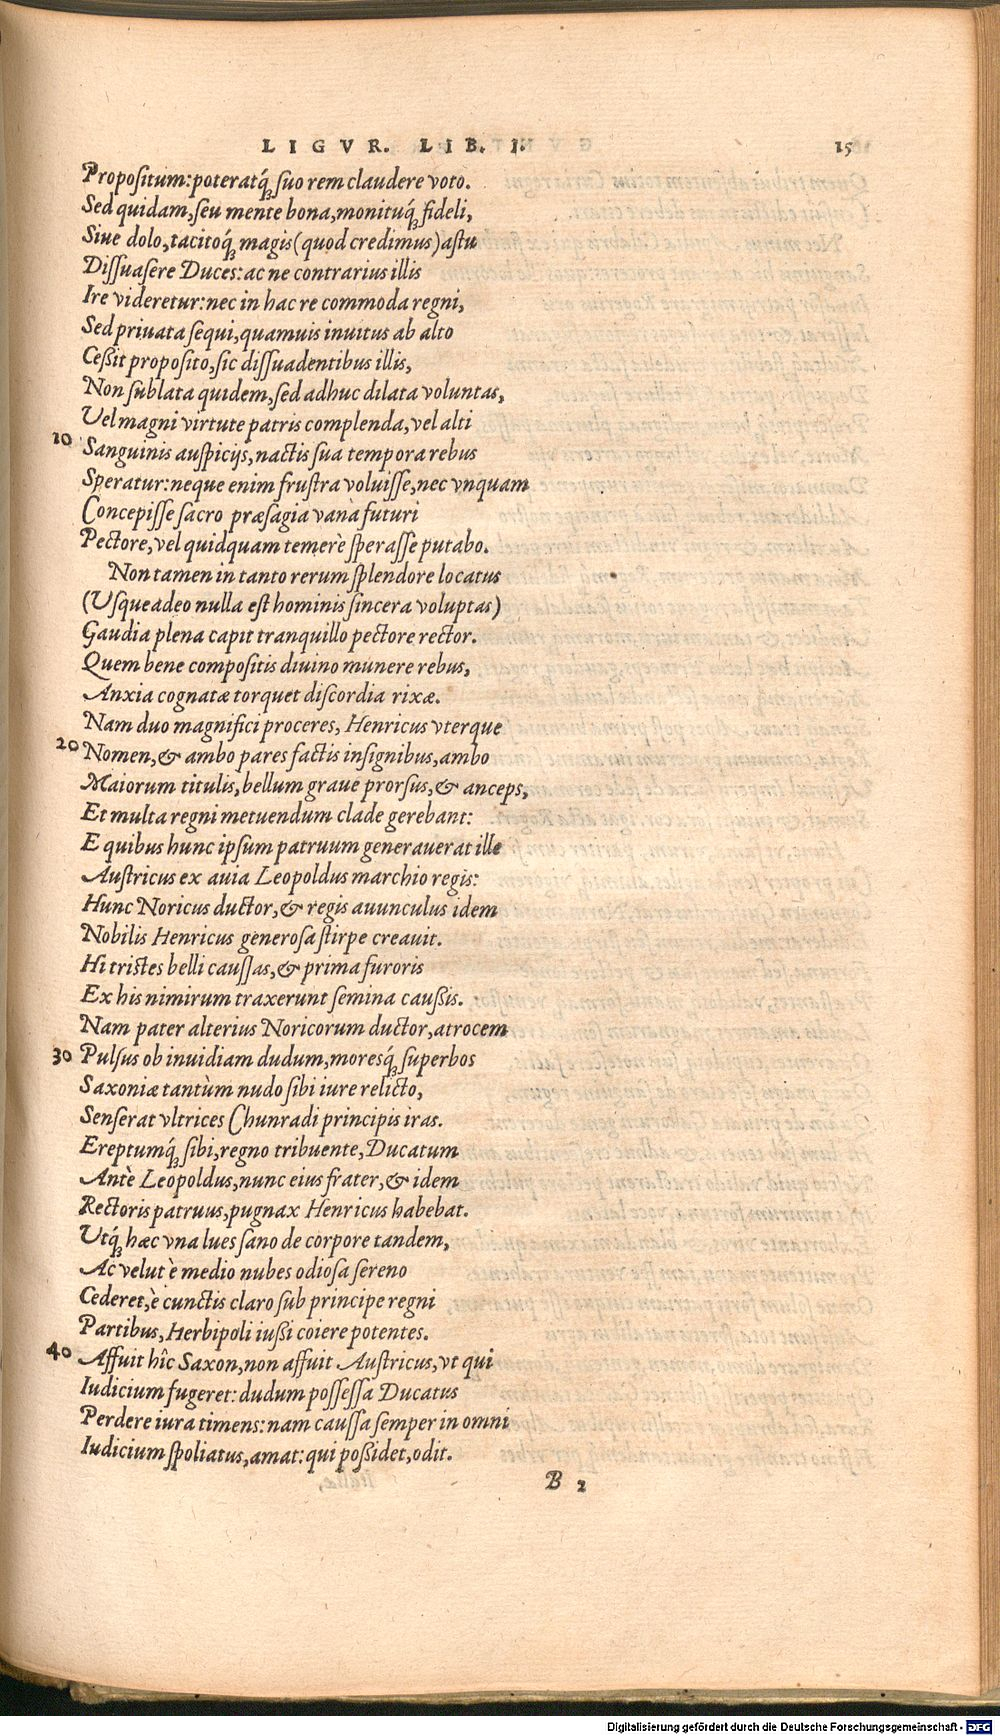 LIGVR. LIB. I. 15
Propositum: poteratq́; suo rem claudere voto.
Sed quidam, seu mente bona, monituq́; fideli,
Siue dolo, tacitoq́; magis (quod credimus) astu
Dissuasere Duces: ac ne contrarius illis
Ire videretur: nec in hac re commoda regni,
Sed priuata sequi, quamuis inuitus ab alto
Ceßit proposito, sic dissuadentibus illis,
Non sublata quidem, sed adhuc dilata voluntas,
Vel magni virtute patris complenda, vel alti
10 Sanguinis auspicijs, nactis sua tempora rebus
Speratur: neque enim frustra voluisse, nec vnquam
Concepisse sacro præsagia vana futuri
Pectore, vel quidquam temerè sperasse putabo.
Non tamen in tanto rerum splendore locatus
(Vsque adeo nulla est hominis sincera voluptas)
Gaudia plena capit tranquillo pectore rector.
Quem bene compositis diuino munere rebus,
Anxia cognatæ torquet discordia rixæ.
Nam duo magnifici proceres, Henricus vterque
20 Nomen, & ambo pares factis insignibus, ambo
Maiorum titulis, bellum graue prorsus, & anceps,
Et multa regni metuendum clade gerebant:
E quibus hunc ipsum patruum generauerat ille
Austricus ex auia Leopoldus marchio regis:
Hunc Noricus ductor, & regis auunculus idem
Nobilis Henricus generosa stirpe creauit.
Hi tristes belli caussas, & prima furoris
Ex his nimirum traxerunt semina caußis.
Nam pater alterius Noricorum ductor, atrocem
30 Pulsus ob inuidiam dudum, moresq́; superbos
Saxoniæ tantùm nudo sibi iure relicto,
Senserat vltrices Chunradi principis iras.
Ereptumq́; sibi, regno tribuente, Ducatum
Antè Leopoldus, nunc eius frater, & idem
Rectoris patruus, pugnax Henricus habebat.
Vtq́; hæc vna lues sano de corpore tandem,
Ac velut è medio nubes odiosa sereno
Cederet, è cunctis claro sub principe regni
Partibus, Herbipoli iußi coiere potentes.
40 Affuit hîc Saxon, non affuit Austricus, vt qui
Iudicium fugeret: dudum possessa Ducatus
Perdere iura timens: nam caussa semper in omni
Iudicium spoliatus, amat: qui poßidet, odit.
B 2
Digitalisierung gefördert durch die Deutsche Forschungsgemeinschaft - DFG